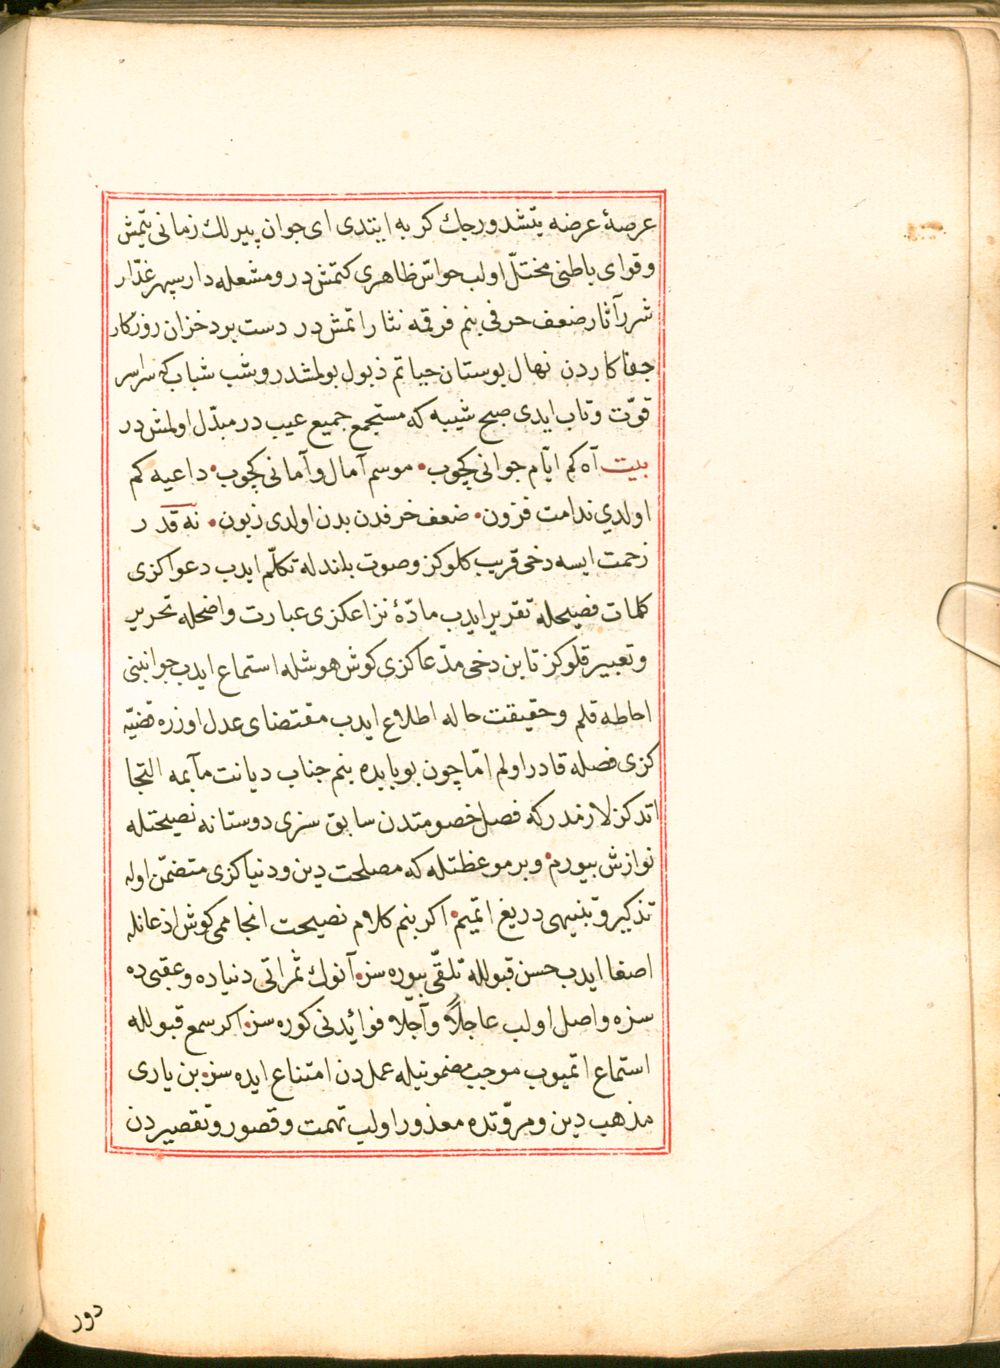 عرصهٔ عرضه یتّشدورجك کربه ایتدی ای جوان پیرلك زمانی یتمش
وقوای باطنی مختلّ اولب حواسّ ظاهری کتمش در ومشعله دار سپهر غدّار
شررآثار ضعف حرفی بنم فرقمه نثار اتمش در دست برد خزان روزکار
جفاکاردن نهال بوستان حیاتم ذبول بولمشدر وشب شباب که سراسر
قوّت وتاب ایدی صبح شیبه که مستجمع جمیع عیب در مبدّل اولمش در
بیت آه کم ایّام جوانی کچوب • موسم آمال وآمانی کچوب • داعیه کم
اولدی ندامت فزون • ضعف خرفدن بدن اولدی زبون • نه قدر
زحمت ایسه دخی قریب کلوکز وصوت بلندله تکلّم ایدب دعواکزی
کلمات فصیحله تقریر ایدب مادّهٔ نزاعکزی عبارت واضحله تحریر
وتعبیر قلوکز تا بن دخی مدّعاکزی کوش هوشله استماع ایدب جوانبنی
احاطه قلم وحقیقت حاله اطلاع ایدب مقتضای عدل اوزره قضیّه
کزی فصله قادر اولم امّا چون بو بابده بنم جناب دیانت مآبمه التجا
اتدکز لازمدرکه فصل خصومتدن سابق سزی دوستانه نصیحتله
نوازش بیورم • وبر موعظتله که مصلحت دین ودنیاکزی متضمّن اوله
تذکیر وتنبیهی دریغ اتمیم • اکر بنم کلام نصیحت انجاممی کوش اذعانله
اصغا ایدب حسن قبولله تلقّی بیوره سز • آنوك ثمراتی دنیاده وعقبی ده
سزه واصل اولب عاجلاً وآجلا فوائدنی کوره سز • اکر سمع قبولله
استماع اتمیوب موجب مضمونیله عمل دن امتناع ایده سز • بن یاری
مذهب دین ومروّتده معذور اولب تهمت وقصور وتقصیردن
دور